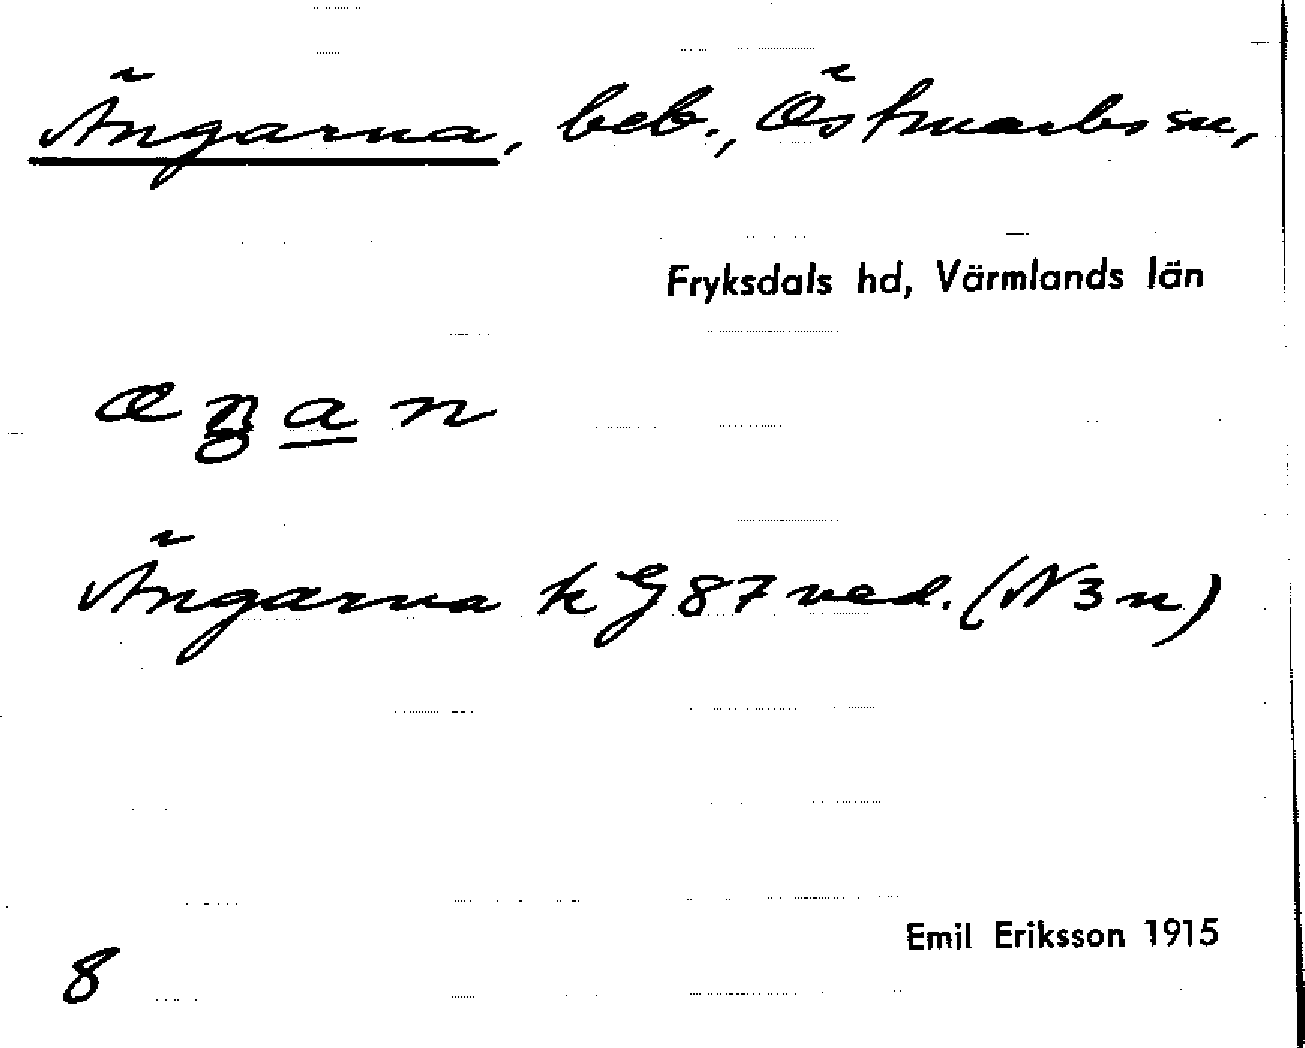 Ängarna, beb., Östmarks sn,
Fryksdals hd, Värmlands län
æŋan
Ängarna k G 87 ned. (N 3 n)
Emil Eriksson 1915
8